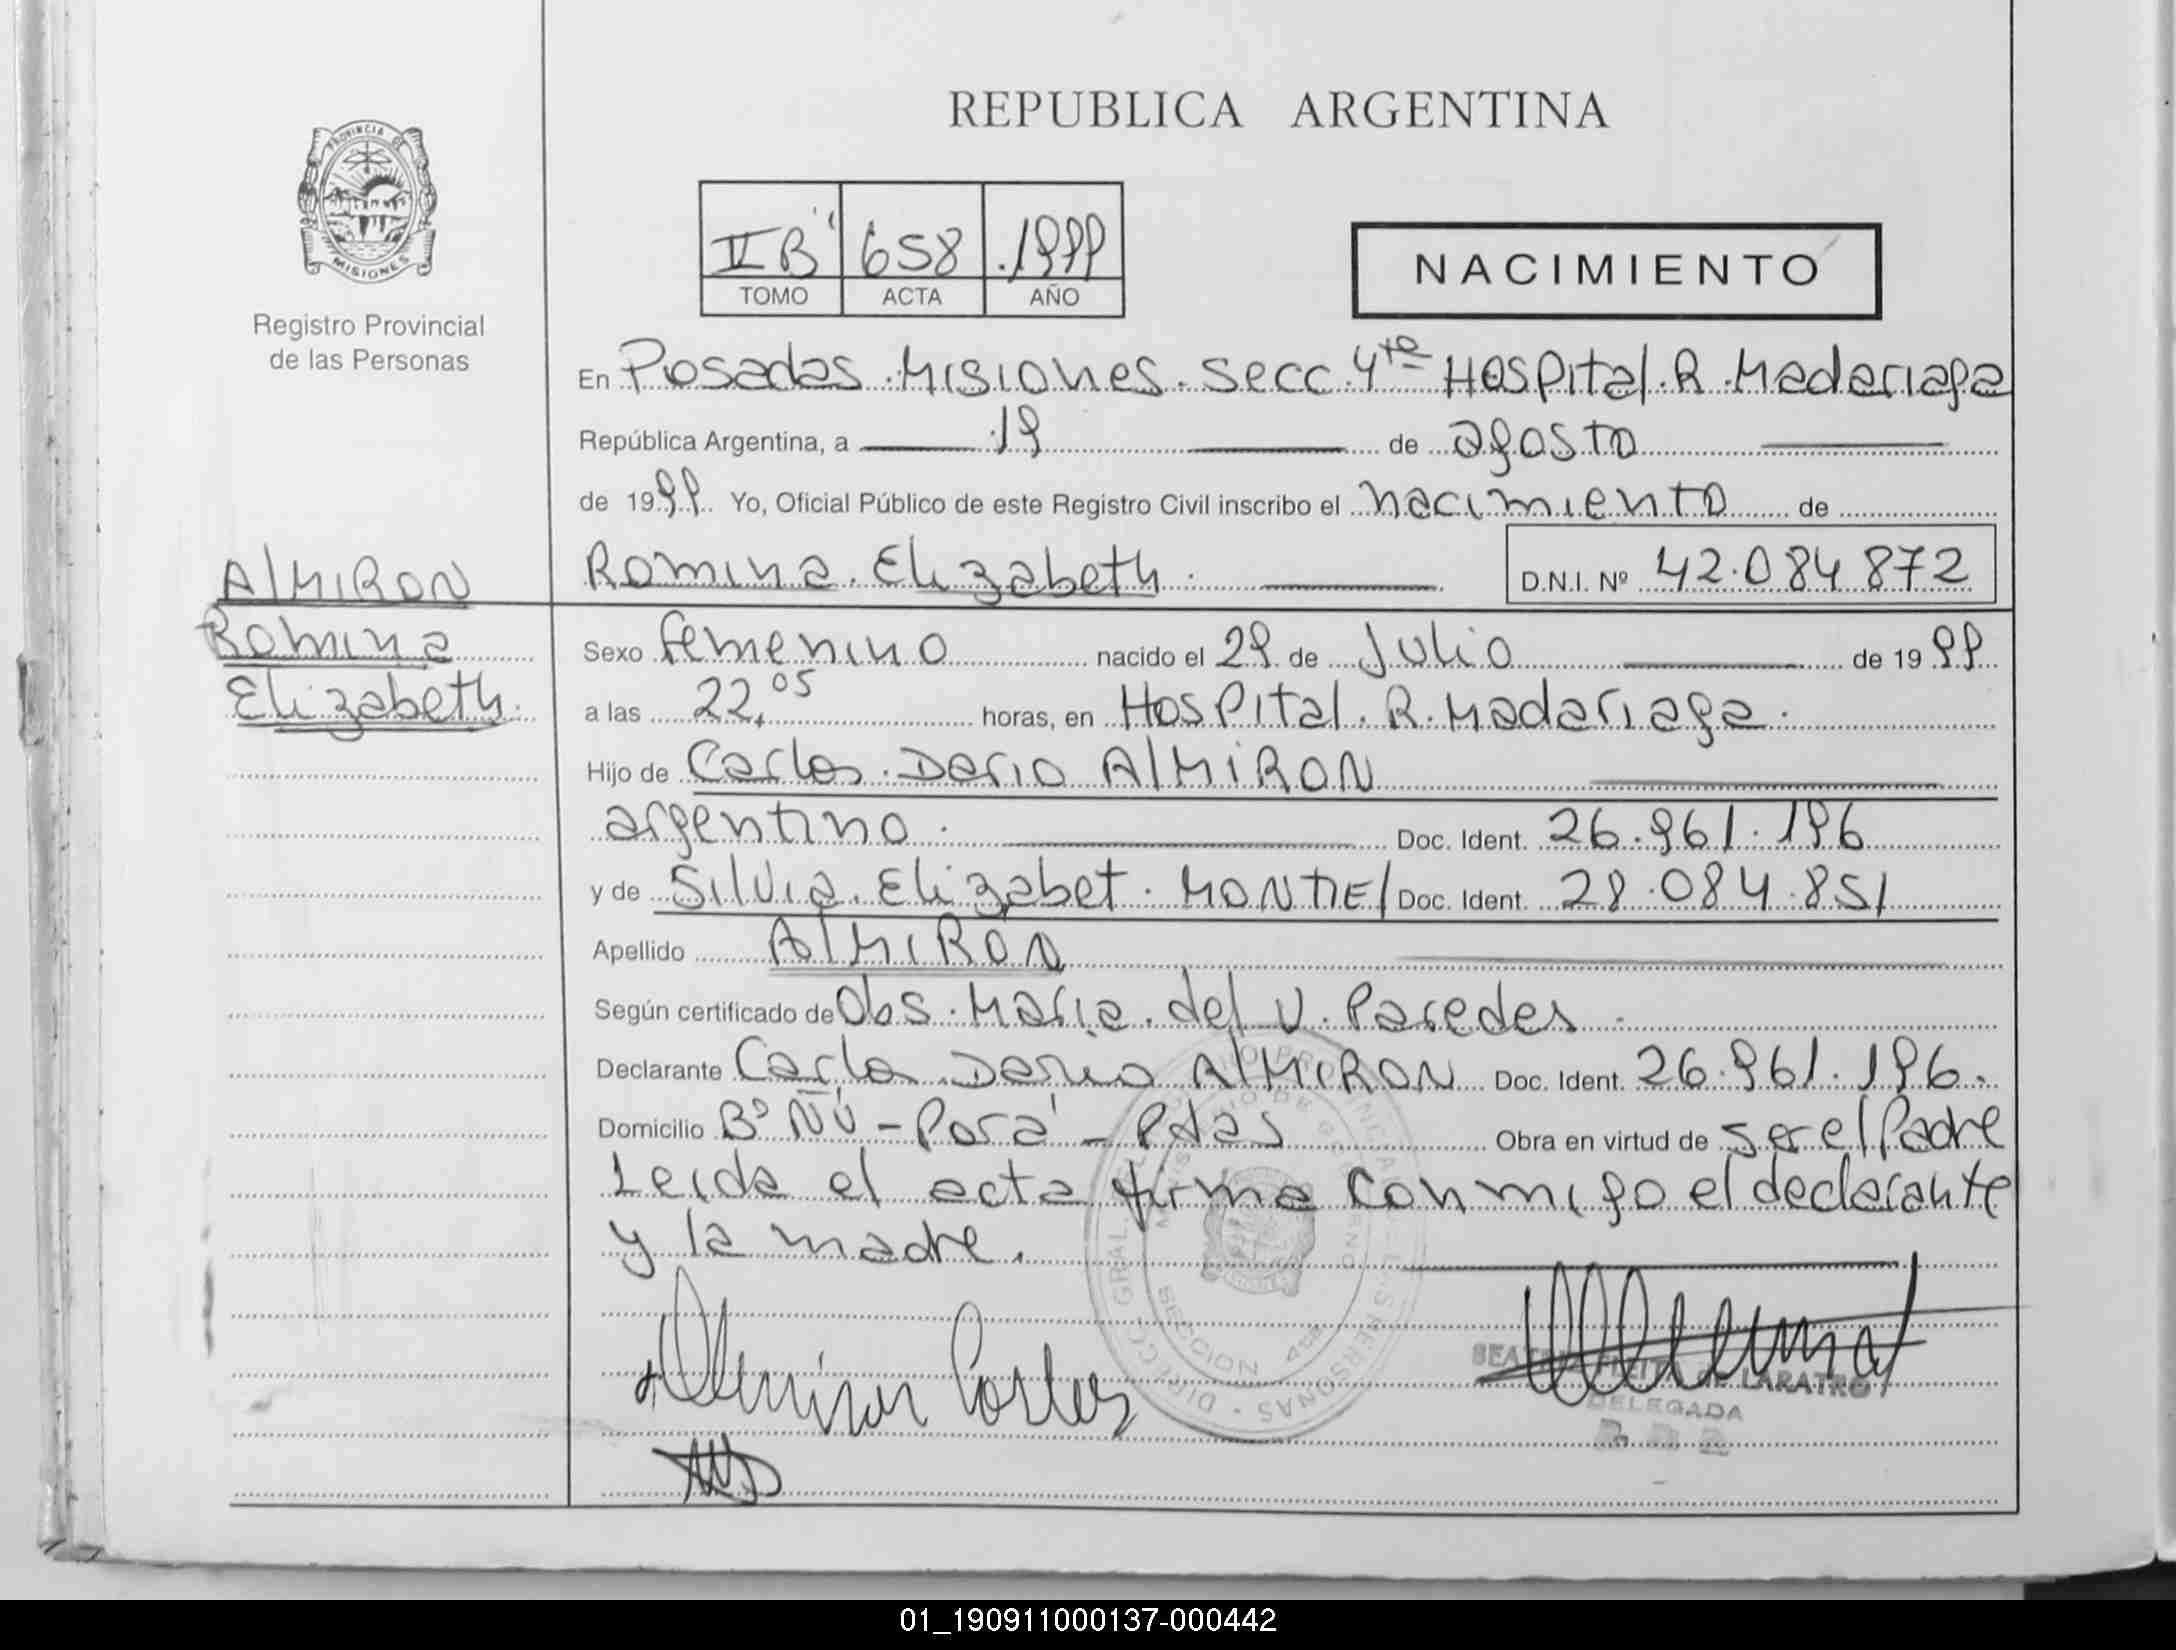 REPUBLICA ARGENTINA
PROVINCIA DE MISIONES
Registro Provincial
de las Personas
II B" 658 .1999
TOMO ACTA AÑO
NACIMIENTO
En Posadas. Misiones. Secc. 4ta Hospital. R. Madariaga
República Argentina, a 19 de agosto
de 1999 Yo, Oficial Público de este Registro Civil inscribo el nacimiento de
Romina. Elizabeth. D.N.I. Nº 42.084.872
AlMIRON
Romina
Elizabeth.
Sexo femenino nacido el 29 de Julio de 1999
a las 22,05 horas, en Hospital. R. Madariaga.
Hijo de Carlos. Dario AlMIRON
argentino. Doc. Ident. 26.961.196
y de Silvia. Elizabet. MONTIEl Doc. Ident. 28.084.851
Apellido AlMIRON
Según certificado de Obs. Maria. del V. Paredes.
Declarante Carlos Dario AlMIRON Doc. Ident. 26.961.196.
Domicilio Bº ÑÚ - Porá - Pdas Obra en virtud de ser el Padre
Leida el acta firma conmigo el declarante
y la madre.
Almiron Carlos
BEATRIZ FLEITA DE LARATRO
DELEGADA
SECCION 4ta
01_190911000137-000442